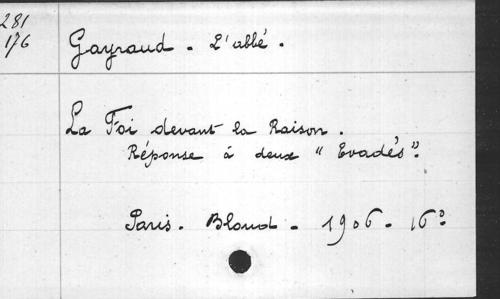 281
176
Gayraud - L'abbé.
La Foi devant la Raison.
Réponse à deux "Evadés".
Paris. Bloud - 1906 - 16°